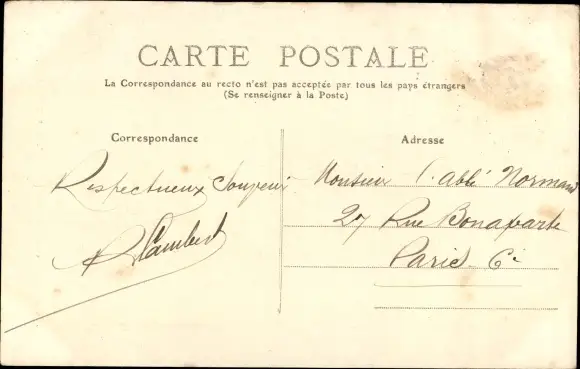 CARTE POSTALE
La Correspondance au recto n'est pas acceptée par tous les pays étrangers
(Se renseigner à la Poste)
Correspondance
Respectueux Souvenir
Lambert
Adresse
Monsieur l'abbé Normand
27 Rue Bonaparte
Paris 6e